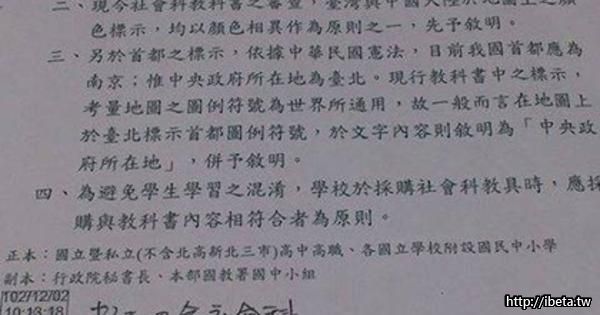 二、現今社會科教科書之審查，臺灣與中國大陸於地圖上之顏
色標示，均以顏色相異作為原則之一，先予敘明。
三、另於首都之標示，依據中華民國憲法，目前我國首都應為
南京；惟中央政府所在地為臺北。現行教科書中之標示，
考量地圖之圖例符號為世界所通用，故一般而言在地圖上
於臺北標示首都圖例符號，於文字內容則敘明為「中央政
府所在地」，併予敘明。
四、為避免學生學習之混淆，學校於採購社會科教具時，應採
購與教科書內容相符合者為原則。
正本：國立暨私立(不含北高新北三市)高中高職、各國立學校附設國民中小學
副本：行政院秘書長、本部國教署國中小組
102/12/02
10:13:18
http://ibeta.tw/